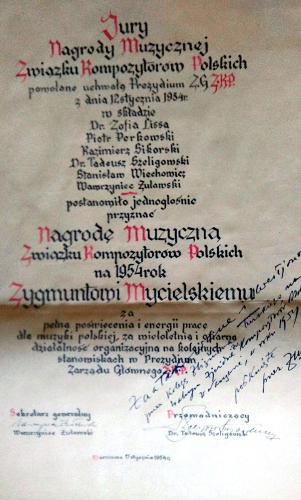 Jury
Nagrody Muzycznej
Związku Kompozytorów Polskich
powołane uchwałą Prezydium Z.G. ZKP.
z dnia 12 stycznia 1954r.
w składzie
Dr. Zofia Lissa
Piotr Perkowski
Kazimierz Sikorski
Dr. Tadeusz Szeligowski
Stanisław Wiechowicz
Wawrzyniec Żuławski
postanowiło jednogłośnie
przyznać
Nagrodę Muzyczną
Związku Kompozytorów Polskich
na 1954 rok
Zygmuntowi Mycielskiemu
za
pełną poświęcenia i energii pracę
dla muzyki polskiej, za wieloletnią i ofiarną
działalność organizacyjną na kolejnych
stanowiskach w Prezydium
Zarządu Głównego ZKP.
Sekretarz generalny
Wawrzyniec Żuławski
Przewodniczący
Dr. Tadeusz Szeligowski
Warszawa stycznia 1954r.